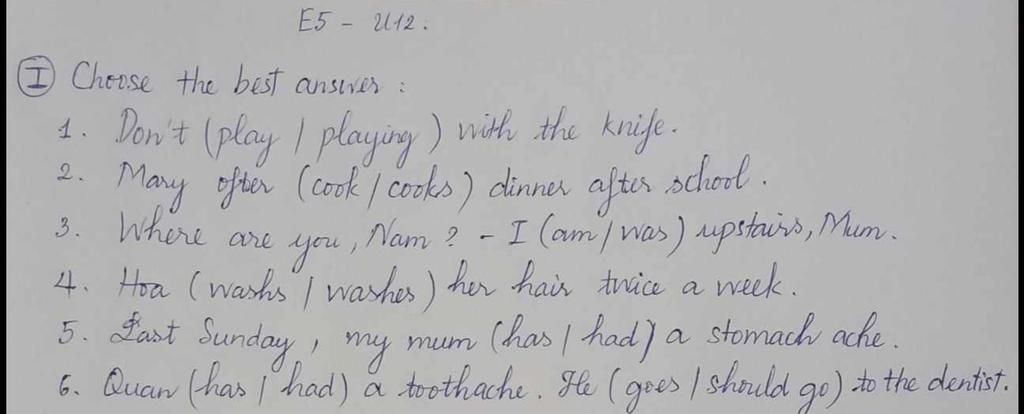 E5 - U12.
I Choose the best answer :
1. Don't (play / playing) with the knife.
2. Mary often (cook / cooks) dinner after school.
3. Where are you, Nam ? - I (am / was) upstairs, Mum.
4. Hoa (washs / washes) her hair twice a week.
5. Last Sunday, my mum (has / had) a stomach ache.
6. Quan (has / had) a toothache. He (goes / should go) to the dentist.